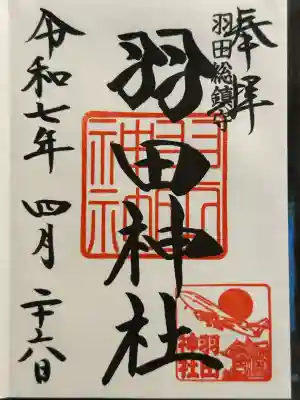 奉拝
羽田総鎮守
羽田神社
令和七年 四月 二十六日
羽田神社
羽田神社